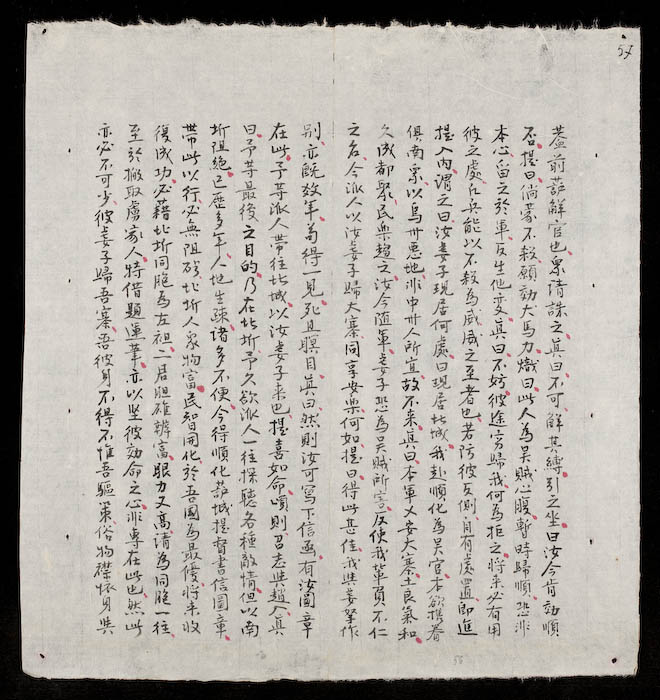 57
蓋前葫解官也眾請誅之真曰不可解其縛引之坐曰汝今肯効順
否提曰倘蒙不殺願効犬馬力熾曰此人為吳賊心腹暫時歸順恐非
本心留之於軍反生他变真曰不妨彼途窮歸我何為拒之将来必有用
彼之處凡兵能以不殺為威威之至者也若防彼反側自有處置即進
提入內謂之曰汝妻子現居何處曰現居北城我赴順化為吳官本欲携眷
俱南眾以烏州惡地非中州人所宜故不来真曰本軍乂安大寨土良氣和
久成都聚民樂趨之汝今随軍妻子恐為吳賊所害反使我輩負不仁
之名今派人以汝妻子歸大寨同享安樂何如提曰得此甚佳我與妻孥作
别亦既数年苟得一見死且瞑目真曰然則汝可写下信函有汝圖章
在此予等派人帶往北城以汝妻子来也提喜如命頌則召志與趙入真
曰予等最後之目的乃在北圻予久欲派人一往探聽各種敵情但以南
圻阻絕已歷多年人地生疎諸多不便今得順化葫城提督書信圖章
帶此以行必無阻碍北圻人眾物富民智開化於吾國為最優将来收
復成功必藉北圻同胞為左袒二君胆確辨富眼力又高請為同胞一往
至於搬取虜家人特借題運筆亦以堅彼効命之心非專在此也然此
亦必不可少彼妻子歸吾寨吾彼身不得不惟吾驅策俗物襟怀見與